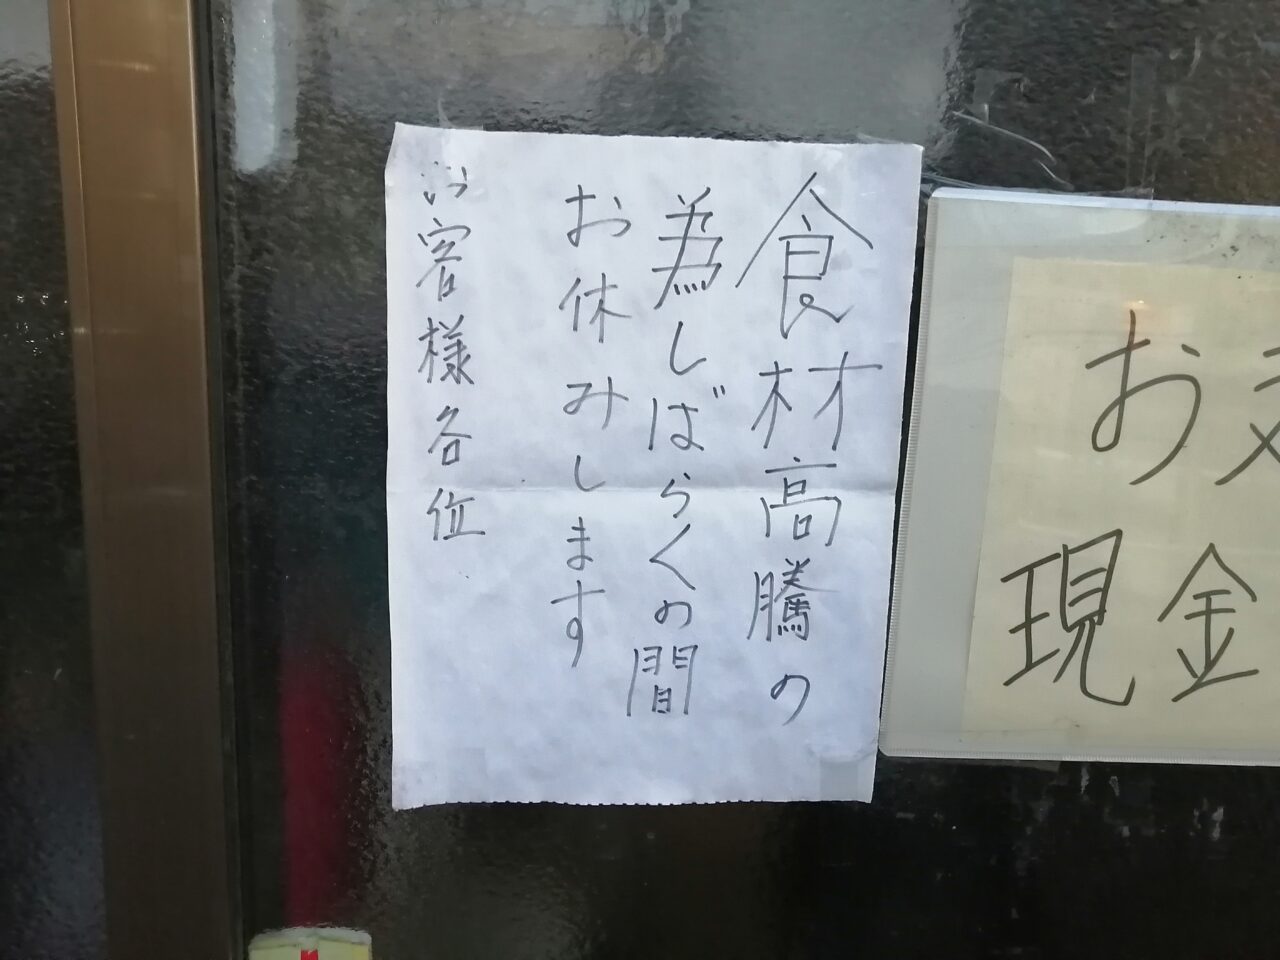 食材高騰の
為しばらくの間
お休みします
お客様各位
お
現金